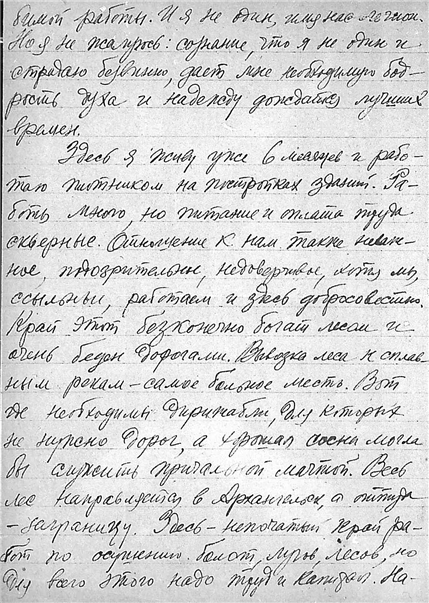 бимой работы. И я не один, имя нас легион.
Но я не жалуюсь: сознание, что я не один и
страдаю безвинно, дает мне необходимую бод-
рость духа и надежду дождаться лучших
времен.
Здесь я живу уже 6 месяцев и рабо-
таю плотником на постройках зданий. Ра-
боты много, но питание и оплата труда
скверные. Отношение к нам также неваж-
ное, подозрительны, недоверчивы, хотя мы,
ссыльные, работаем и здесь добросовестно.
Край этот безконечно богат лесом и
очень беден дорогами. Вывозка леса к сплав-
ным рекам – самое больное место. Вот
где необходимы дирижабли, для которых
не нужно дорог, а хорошая сосна могла
бы служить причальной мачтой. Весь
лес направляется в Архангельск, а оттуда
– заграницу. Здесь – непочатый край ра-
бот по осушению болот, лугов лесов, но
для всего этого надо труд и капитал. На-